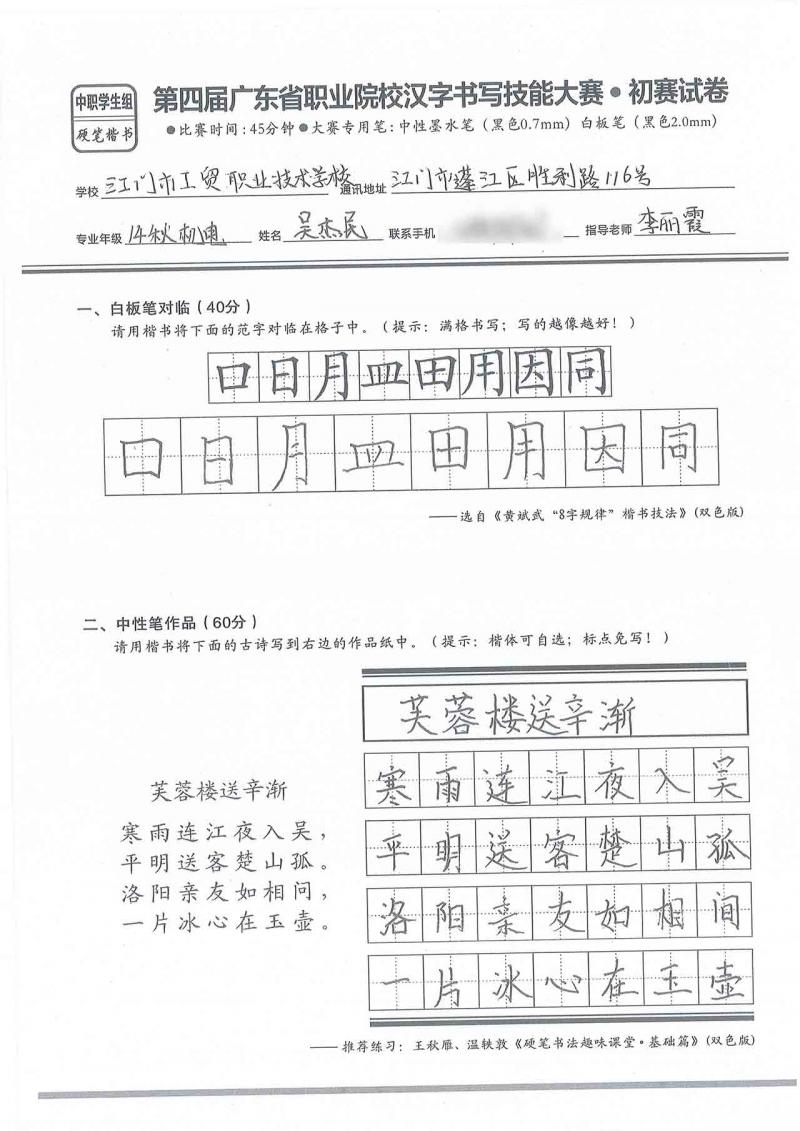 中职学生组
硬笔楷书
第四届广东省职业院校汉字书写技能大赛•初赛试卷
●比赛时间:45分钟●大赛专用笔:中性墨水笔（黑色0.7mm）白板笔（黑色2.0mm）
学校 江门市工贸职业技术学校 通讯地址 江门市蓬江区胜利路116号
专业年级 14秋机电 姓名 吴杰民 联系手机 指导老师 李丽霞
一、白板笔对临（40分）
请用楷书将下面的范字对临在格子中。（提示：满格书写；写的越像越好！）
口日月皿田用因同
口日月皿田用因同
——选自《黄斌武“8字规律”楷书技法》(双色版)
二、中性笔作品（60分）
请用楷书将下面的古诗写到右边的作品纸中。（提示：楷体可自选；标点免写！）
芙蓉楼送辛渐
寒雨连江夜入吴，
平明送客楚山孤。
洛阳亲友如相问，
一片冰心在玉壶。
芙蓉楼送辛渐
寒雨连江夜入吴
平明送客楚山孤
洛阳亲友如相间
一片冰心在玉壶
——推荐练习：王秋雁、温轶敦《硬笔书法趣味课堂·基础篇》(双色版)